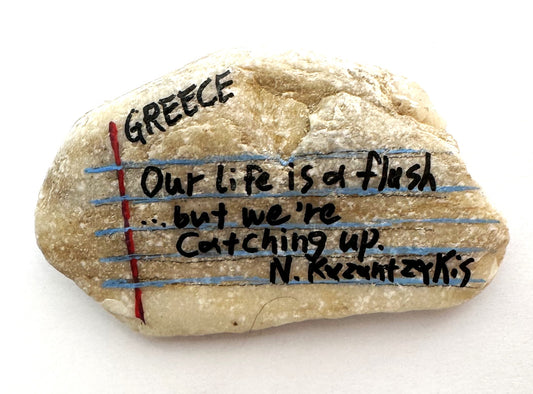 GREECE
Our life is a flash
...but we're
Catching up.
N. Kazantzakis